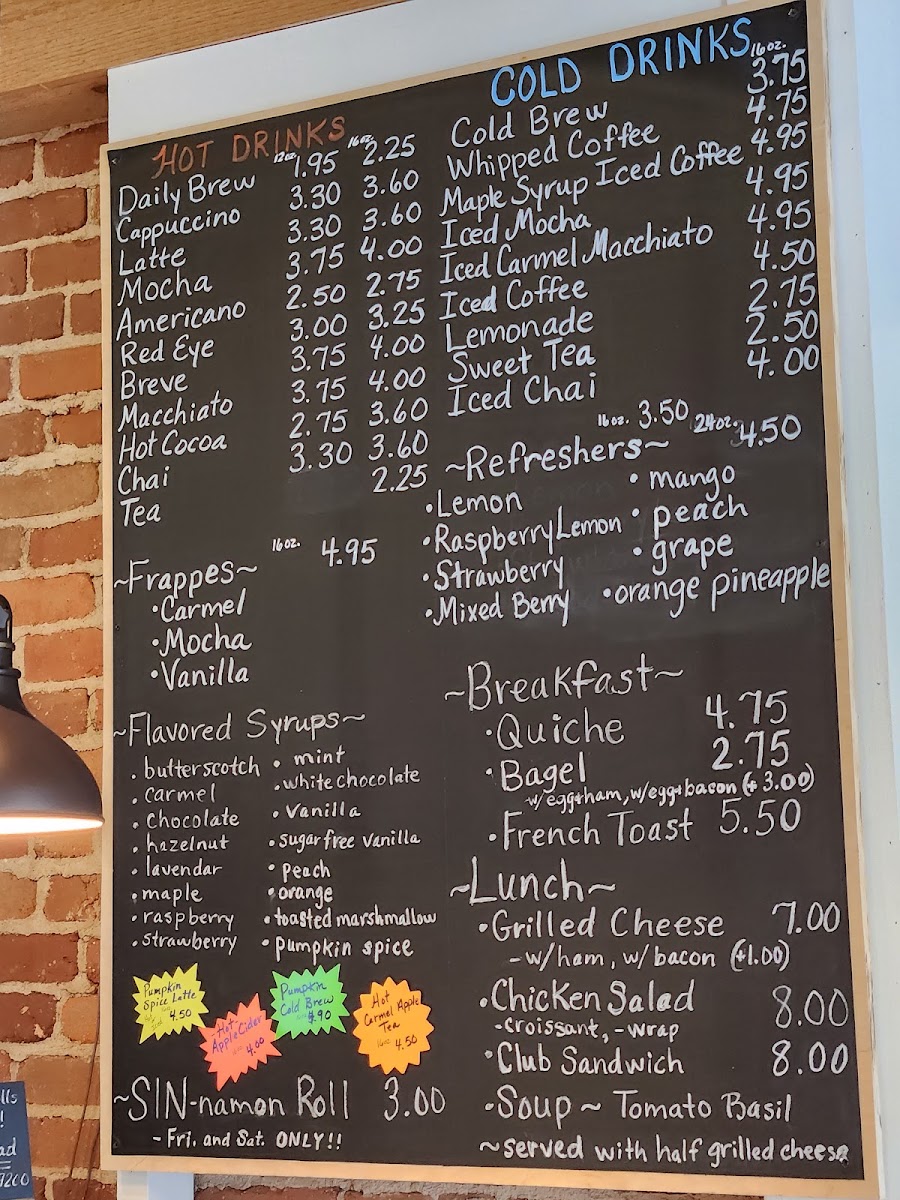 HOT DRINKS
12oz. 16oz.
Daily Brew 1.95 2.25
Cappuccino 3.30 3.60
Latte 3.30 3.60
Mocha 3.75 4.00
Americano 2.50 2.75
Red Eye 3.00 3.25
Breve 3.75 4.00
Macchiato 3.75 4.00
Hot Cocoa 2.75 3.60
Chai 3.30 3.60
Tea 2.25
~Frappes~ 16oz. 4.95
• Carmel
• Mocha
• Vanilla
~Flavored Syrups~
• butterscotch
• carmel
• chocolate
• hazelnut
• lavendar
• maple
• raspberry
• strawberry
• mint
• white chocolate
• vanilla
• sugar free vanilla
• peach
• orange
• toasted marshmallow
• pumpkin spice
Pumpkin
Spice Latte
4.50
Hot
Apple Cider
4.00
Pumpkin
Cold Brew
4.90
Hot
Carmel Apple
Tea
16oz 4.50
~SIN-namon Roll 3.00
- Fri. and Sat. ONLY!!
COLD DRINKS
16oz.
Cold Brew 3.75
Whipped Coffee 4.75
Maple Syrup Iced Coffee 4.95
Iced Mocha 4.95
Iced Carmel Macchiato 4.95
Iced Coffee 4.50
Lemonade 2.75
Sweet Tea 2.50
Iced Chai 4.00
~Refreshers~ 16oz. 3.50 24oz. 4.50
• Lemon
• Raspberry Lemon
• Strawberry
• Mixed Berry
• mango
• peach
• grape
• orange pineapple
~Breakfast~
• Quiche 4.75
• Bagel 2.75
w/egg+ham, w/egg+bacon (+3.00)
• French Toast 5.50
~Lunch~
• Grilled Cheese 7.00
- w/ham, w/bacon (+1.00)
• Chicken Salad 8.00
- croissant, - wrap
• Club Sandwich 8.00
• Soup ~ Tomato Basil
~served with half grilled cheese